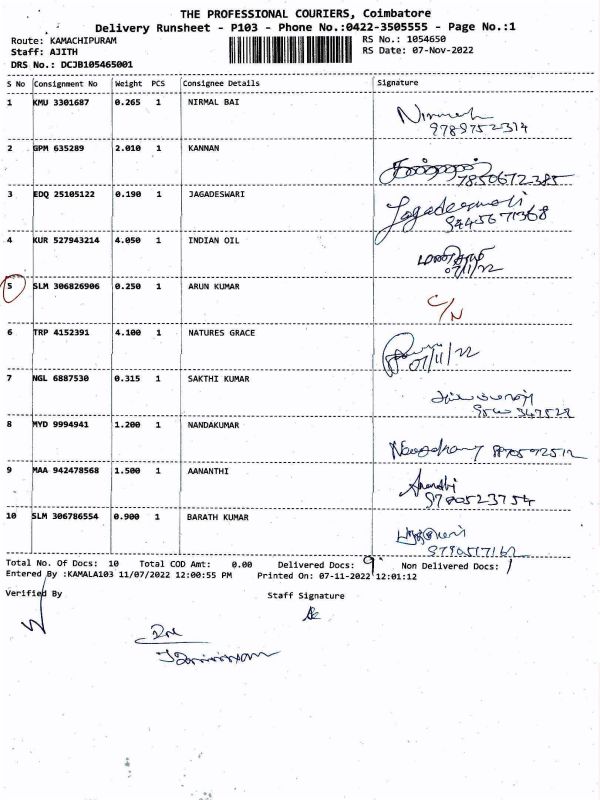 THE PROFESSIONAL COURIERS, Coimbatore
Delivery Runsheet - P103 - Phone No.:0422-3505555 - Page No.:1
Route: KAMACHIPURAM RS No.: 1054650
Staff: AJITH RS Date: 07-Nov-2022
DRS No.: DCJB105465001
S No Consignment No Weight PCS Consignee Details Signature
1 KMU 3301687 0.265 1 NIRMAL BAI
9789752314
2 GPM 635289 2.010 1 KANNAN
7850672385
3 EDQ 25105122 0.190 1 JAGADESWARI Jagadeeswari
9445671368
4 KUR 527943214 4.050 1 INDIAN OIL
07/11/22
5 SLM 306826906 0.250 1 ARUN KUMAR C/N
6 TRP 4152391 4.100 1 NATURES GRACE
07/11/22
7 NGL 6887530 0.315 1 SAKTHI KUMAR
8 MYD 9994941 1.200 1 NANDAKUMAR
9 MAA 942478568 1.500 1 AANANTHI Anandhi
9780523754
10 SLM 306786554 0.900 1 BARATH KUMAR
Total No. Of Docs: 10 Total COD Amt: 0.00 Delivered Docs: 9 Non Delivered Docs: 1
Entered By :KAMALA103 11/07/2022 12:00:55 PM Printed On: 07-11-2022 12:01:12
Verified By Staff Signature